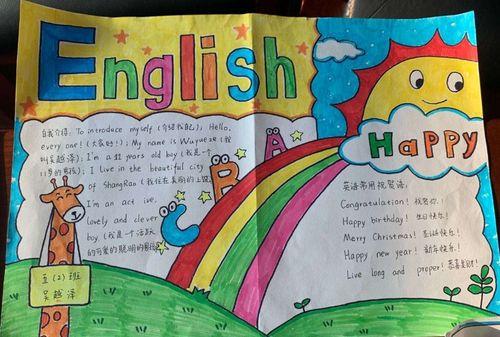 English
自我介绍: To introduce myself (介绍我自己); Hello,
every one! (大家好!); My name is Wuyueze (我
叫吴越泽); I'm a 11 years old boy (我是一个
11岁的男孩); I live in the beautiful city
of ShangRao (我住在美丽的上饶
I'm an act ive,
lovely and clever
boy (我是一个活跃
的可爱的聪明的男孩
A
B
C
五(2)班
吴越泽
Happy
英语常用祝贺语:
Congratulation! 祝贺你!
Happy birthday! 生日快乐!
Merry Christmas! 圣诞快乐!
Happy new year! 新年快乐!
Live long and proper! 恭喜发财!